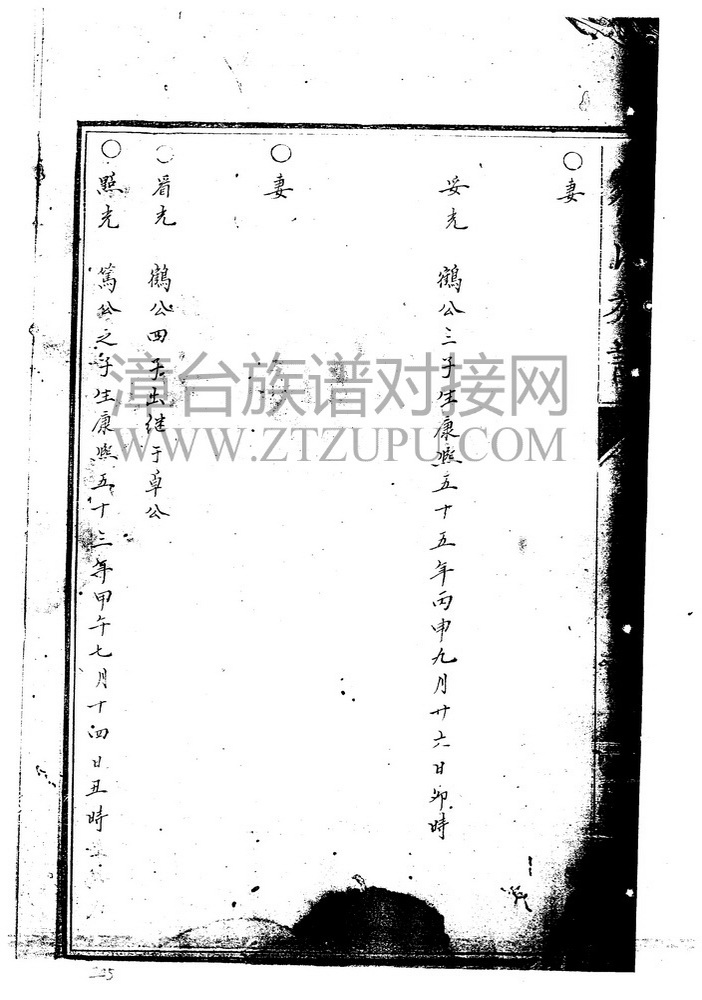 ○妻
妥光 鶴公三子生康熙五十五年丙申九月廿六日卯時
○妻
○眉光 鶴公四子出継于卓公
○熙光 篤公之子生康熙五十三年甲午七月十四日丑時
漳台族谱对接网
WWW.ZTZUPU.COM